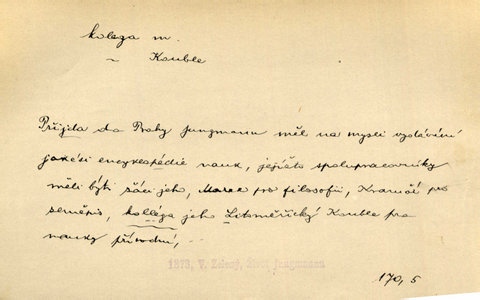 kollega m.
~ Kouble
Přijda do Prahy Jungmann měl na mysli vydávání
jakési encyklopædie nauk, jejížto spolupracovníky
měli býti žáci jeho, Marek pro filosofii, Kramář pro
zeměpis, kollega jeho Litoměřický Kouble pro
nauky přírodní,
1873, V. Zelený, Život Jungmanna
170, 5